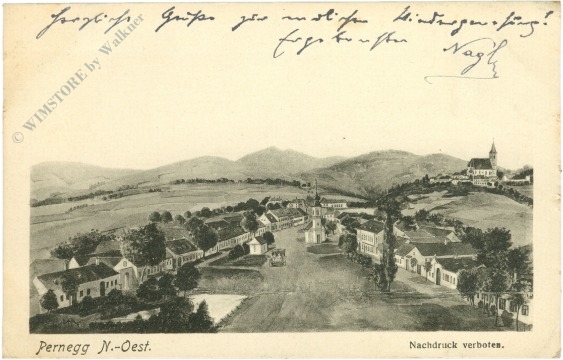 herzliche Grüße zur endlichen Wiedergenesung!
Ergebenster
Nagl
© WIMSTORE by Walkner
Pernegg N.-Oest.
Nachdruck verboten.